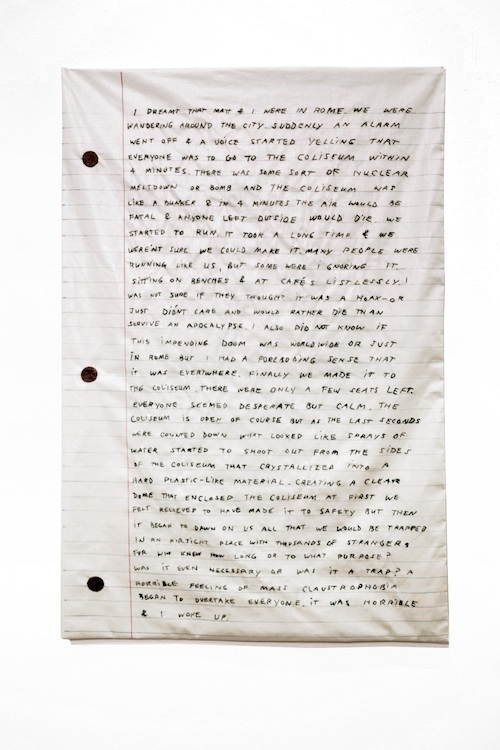 I DREAMT THAT MATT & I WERE IN ROME. WE WERE
WANDERING AROUND THE CITY. SUDDENLY AN ALARM
WENT OFF & A VOICE STARTED YELLING THAT
EVERYONE WAS TO GO TO THE COLISEUM WITHIN
4 MINUTES. THERE WAS SOME SORT OF NUCLEAR
MELTDOWN OR BOMB AND THE COLISEUM WAS
LIKE A BUNKER & IN 4 MINUTES THE AIR WOULD BE
FATAL & ANYONE LEFT OUTSIDE WOULD DIE. WE
STARTED TO RUN. IT TOOK A LONG TIME & WE
WEREN'T SURE WE COULD MAKE IT. MANY PEOPLE WERE
RUNNING LIKE US, BUT SOME WERE IGNORING IT.
SITTING ON BENCHES & AT CAFÉS LISTLESSLY. I
WAS NOT SURE IF THEY THOUGHT IT WAS A HOAX-OR
JUST DIDN'T CARE AND WOULD RATHER DIE THAN
SURVIVE AN APOCALYPSE. I ALSO DID NOT KNOW IF
THIS IMPENDING DOOM WAS WORLDWIDE OR JUST
IN ROME BUT I HAD A FOREBODING SENSE THAT
IT WAS EVERYWHERE. FINALLY WE MADE IT TO
THE COLISEUM. THERE WERE ONLY A FEW SEATS LEFT.
EVERYONE SEEMED DESPERATE BUT CALM. THE
COLISEUM IS OPEN OF COURSE BUT AS THE LAST SECONDS
WERE COUNTED DOWN WHAT LOOKED LIKE SPRAYS OF
WATER STARTED TO SHOOT OUT FROM THE SIDES
OF THE COLISEUM THAT CRYSTALLIZED INTO A
HARD PLASTIC-LIKE MATERIAL. CREATING A CLEAR
DOME THAT ENCLOSED THE COLISEUM. AT FIRST WE
FELT RELIEVED TO HAVE MADE IT TO SAFETY BUT THEN
IT BEGAN TO DAWN ON US ALL THAT WE WOULD BE TRAPPED
IN AN AIRTIGHT PLACE WITH THOUSANDS OF STRANGERS
FOR WHO KNEW HOW LONG OR TO WHAT PURPOSE?
WAS IT EVEN NECESSARY OR WAS IT A TRAP? A
HORRIBLE FEELING OF MASS CLAUSTROPHOBIA
BEGAN TO OVERTAKE EVERYONE. IT WAS HORRIBLE
& I WOKE UP.